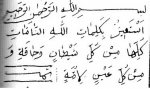 بسم الله الرحمن الرحيم
استعيذ بكلمات الله التامات
كلها من كل شيطان وهامة و
من كل عين لامة